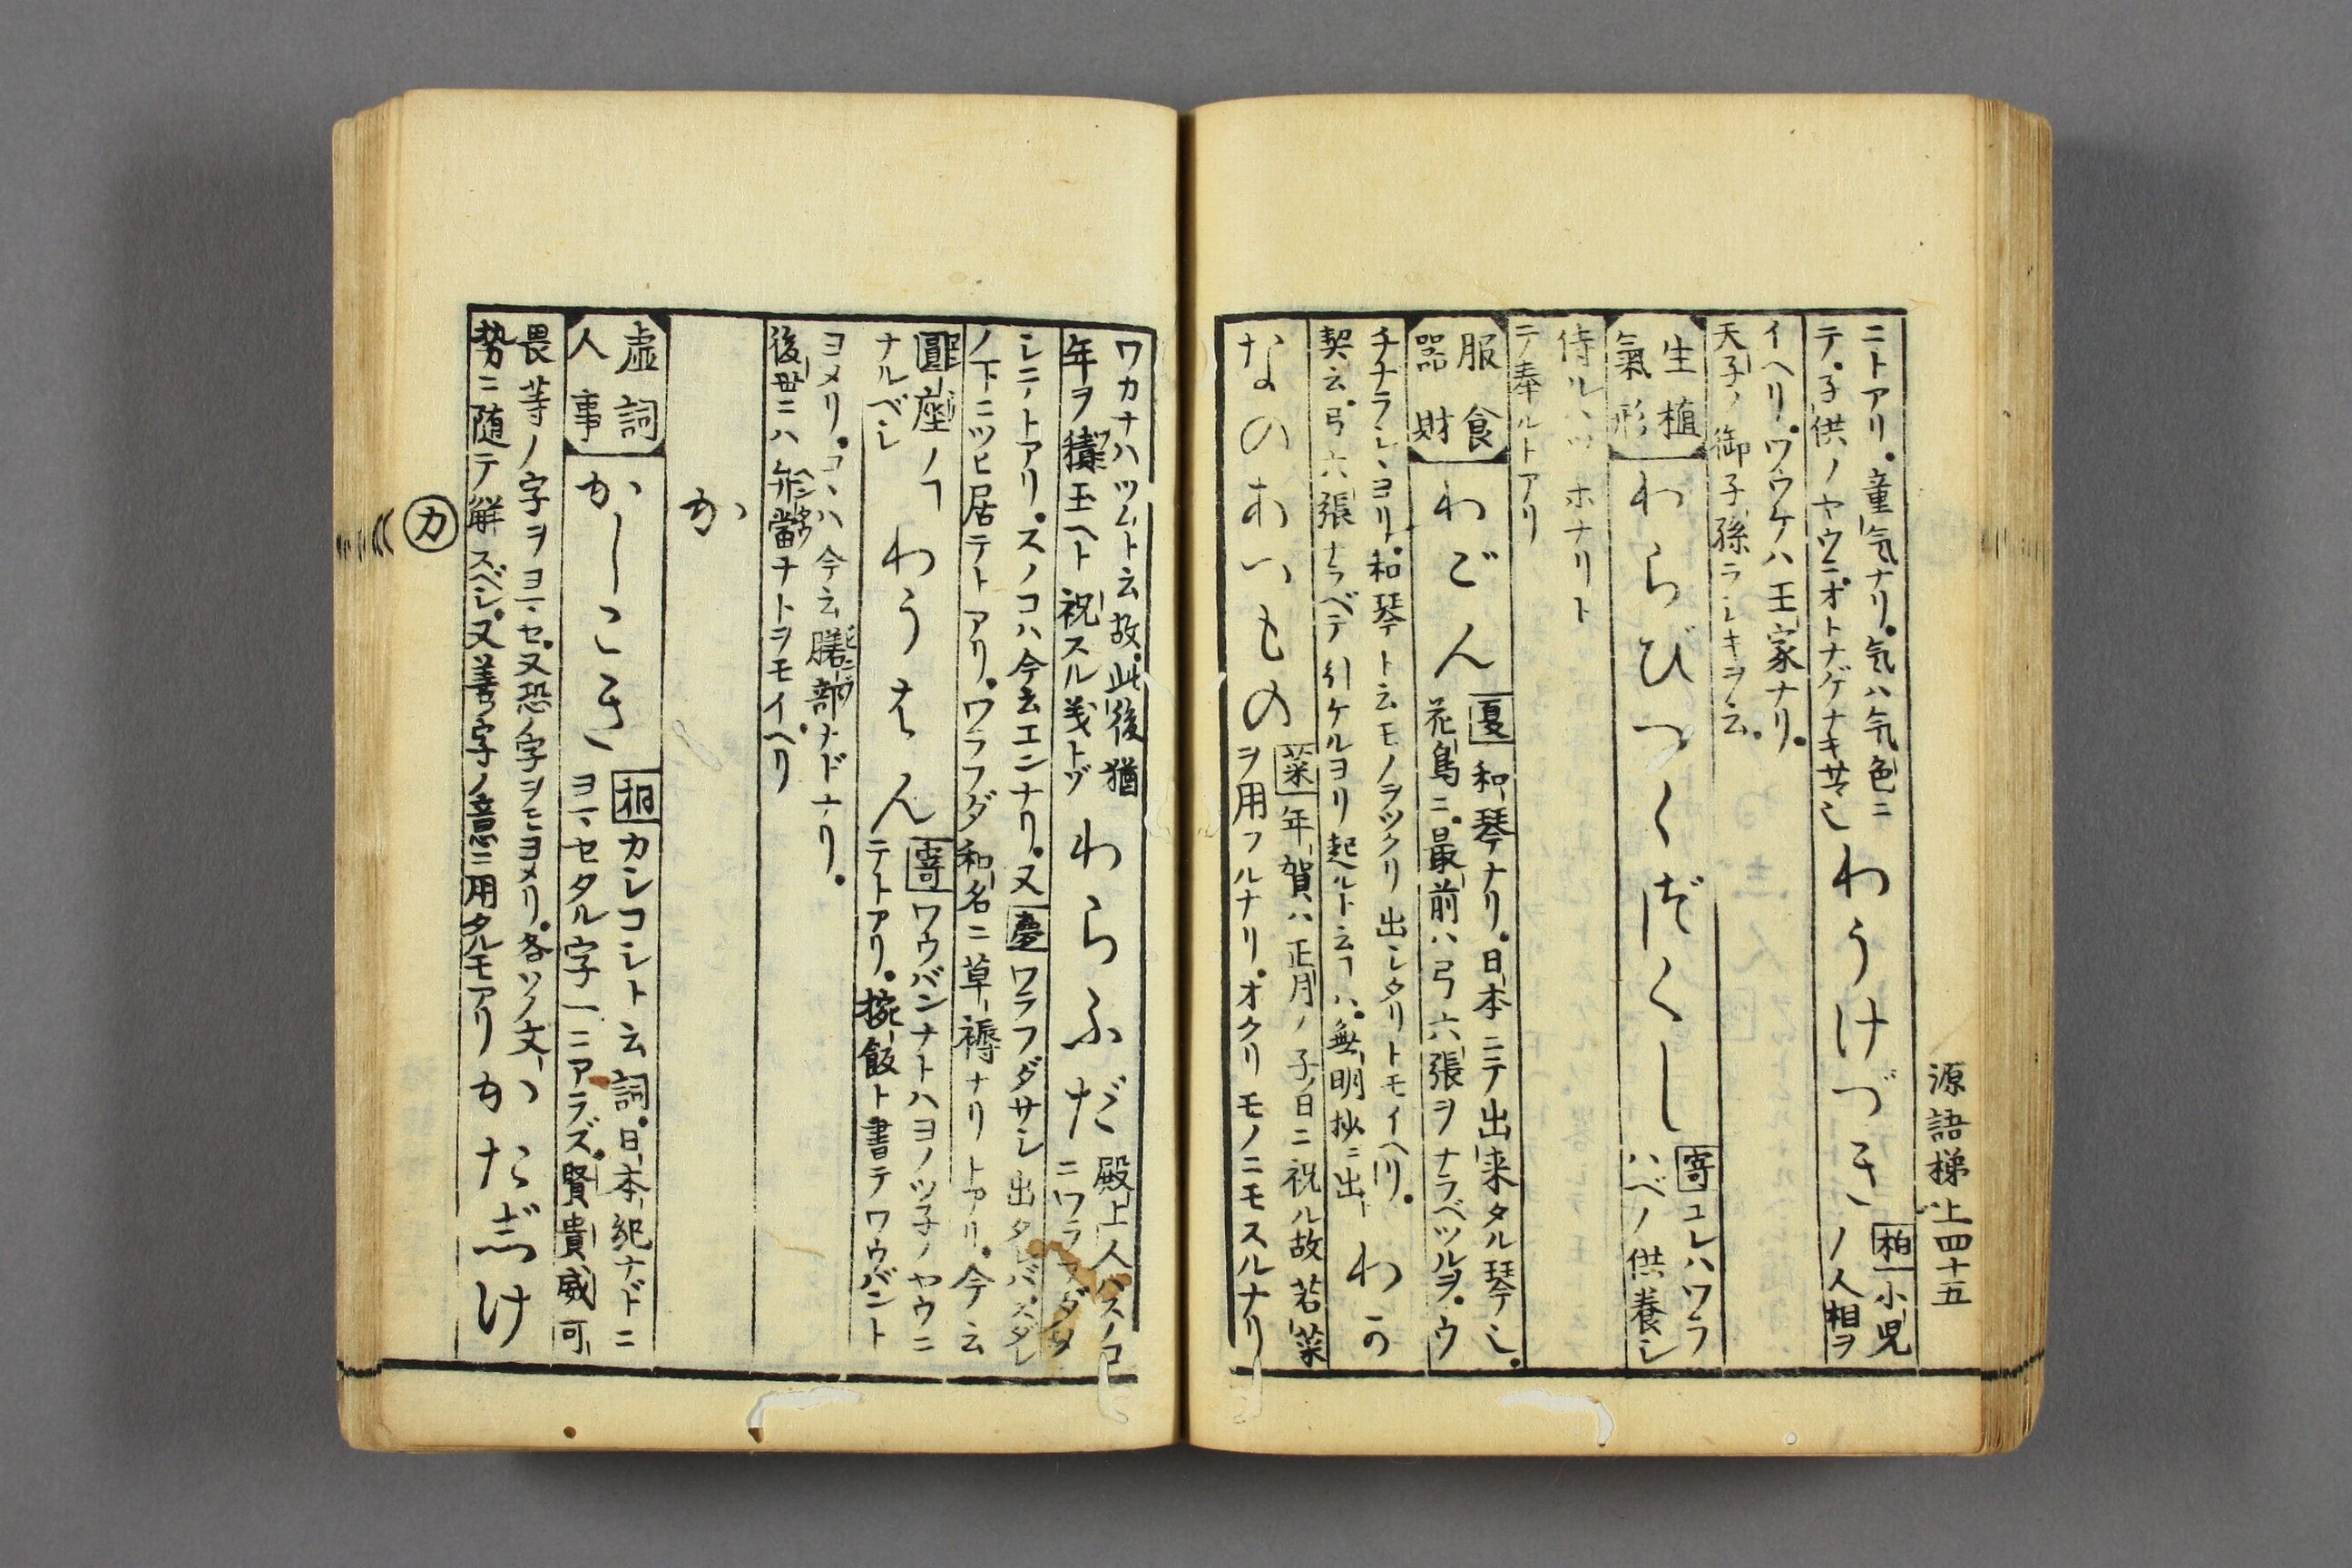 源語梯 上四十五
ニトアリ。童気ナリ。気ハ気色ニ
テ。子供ノヤウニオトナゲナキサマ也
わうけづき
柏 小児
ノ人相ヲ
イヘリ。ワウケハ王家ナリ。
天子ノ御子孫ラシキヲ云。
生植
氣形
わらびつくづくし
寄 コレハワラ
ハベノ供養シ
侍ルハツホナリト
テ奉ルトアリ
服食
器財
わごん
夏 和琴ナリ。日本ニテ出来タル琴也。
花鳥ニ。最前ハ弓六張ヲナラベツルヲ。ウ
チナラシヽヨリ。和琴ト云モノヲツクリ出シタリトモイヘリ。
契云。弓六張ナラベテ引ケルヨリ起ルト云ヿハ。無明抄ニ出
わか
なのあいもの
菜 年賀ハ正月ノ子ノ日ニ祝ル故若菜
ヲ用フルナリ。オクリモノニモスルナリ
ワカナハツムト云故。此後猶
年ヲ積玉ヘト祝スル義トゾ
わらふだ
殿上人ハスノコ
ニワラフダメ
シニトアリ。スノコハ今云エンナリ。又
ワラフダサシ出タレバ。スダレ
ノ下ニツヒ居テトアリ。ワラフダ和名ニ草褥ナリトアリ。今云
圓座ノヿ
ナルベシ
わうばん
寄 ワウバンナトハヨノツ子ノヤウニ
テトアリ。椀飯ト書テワウバント
ヨメリ。コヽハ今云膳部ナドナリ。
後世ニハ弁當ナトヲモイヘリ
か
虚詞
人事
かしこき
桐 カシコシト云詞。日本紀ナドニ
ヨマセタル字一ニアラズ。賢貴威可
畏等ノ字ヲヨマセ。又恐ノ字ヲモヨメリ。各ソノ文
勢ニ随テ解スベシ。又善ノ字ノ意ニ用タルモアリ
かたじけ
カ